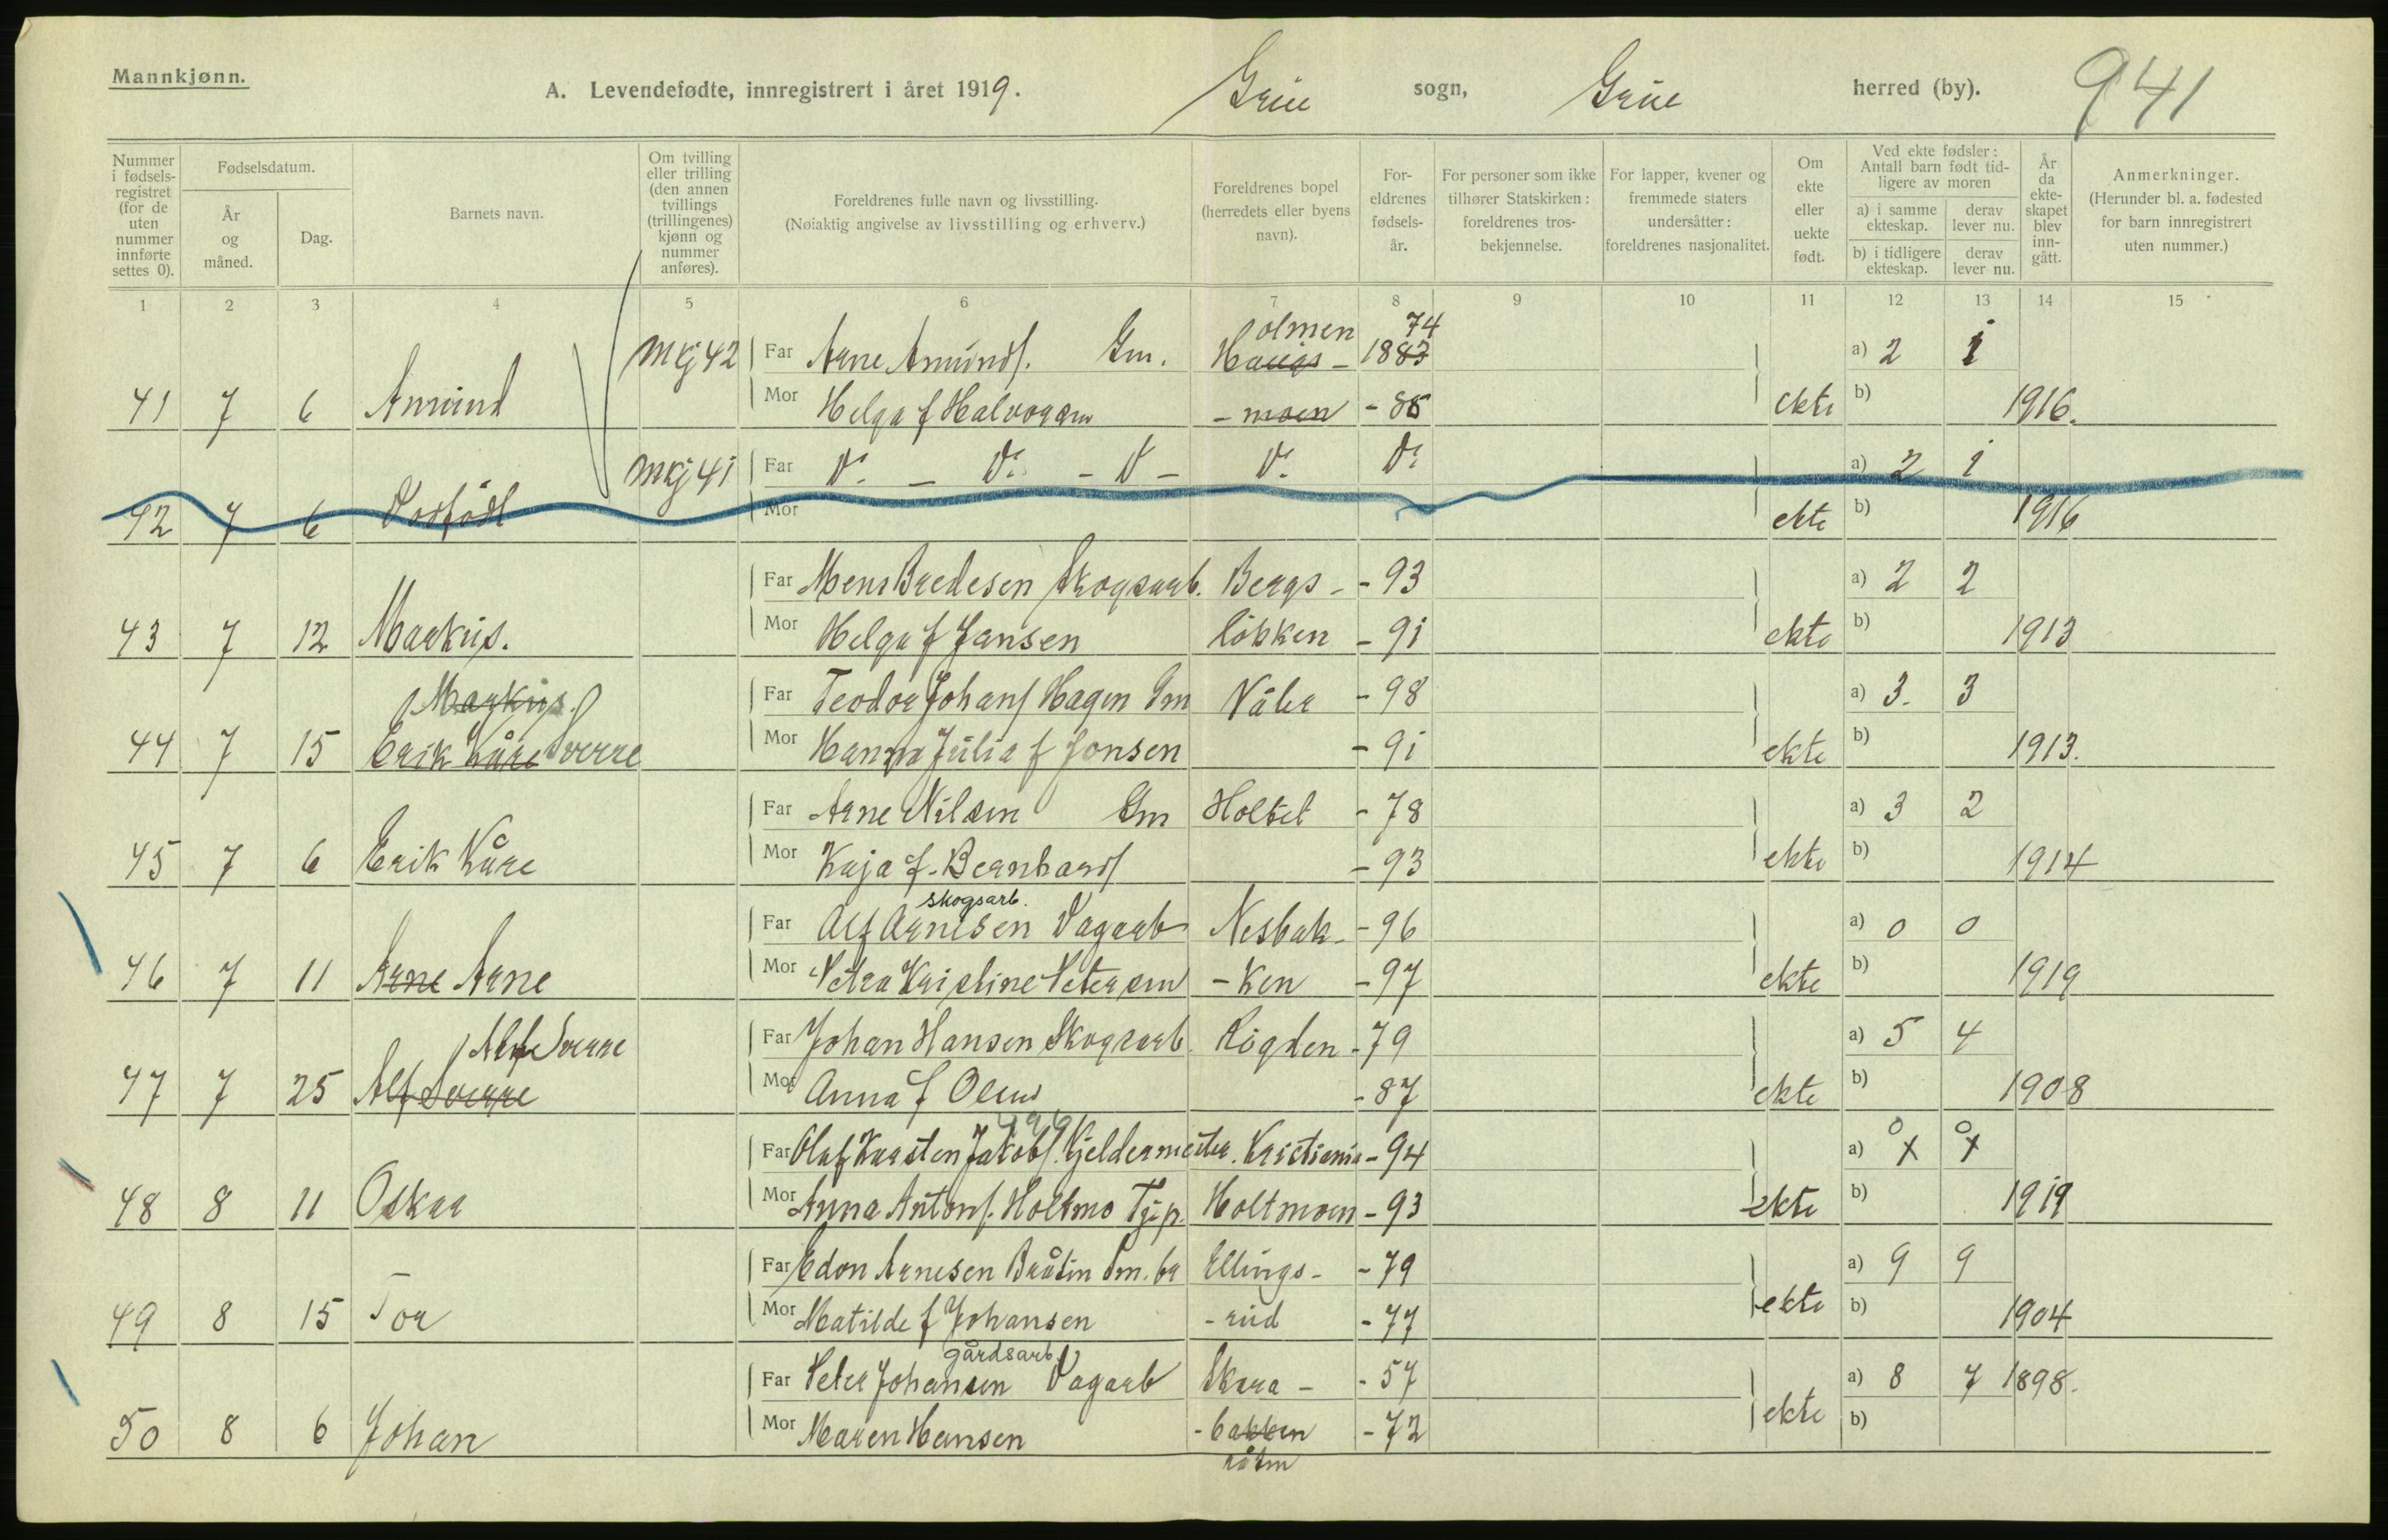 Mannkjønn.
A. Levendefødte, innregistrert i året 1919. Grue sogn, Grue herred (by). 941
Nummer i fødselsregistret (for de uten nummer innførte settes 0).
Fødselsdatum.
År og måned.
Dag.
Barnets navn.
Om tvilling eller trilling (den annen tvillings (trillingenes) kjønn og nummer anføres).
Foreldrenes fulle navn og livsstilling.
(Nøiaktig angivelse av livsstilling og erhverv.)
Foreldrenes bopel (herredets eller byens navn).
Foreldrenes fødselsår.
For personer som ikke tilhører Statskirken: foreldrenes trosbekjennelse.
For lapper, kvener og fremmede staters undersåtter: foreldrenes nasjonalitet.
Om ekte eller uekte født.
Ved ekte fødsler: Antall barn født tidligere av moren
a) i samme ekteskap.
derav lever nu.
b) i tidligere ekteskap.
derav lever nu.
År da ekteskapet blev inngått.
Anmerkninger.
(Herunder bl. a. fødested for barn innregistrert uten nummer.)
1 2 3 4 5 6 7 8 9 10 11 12 13 14 15
olmen 74
mkj 42 Far Arne Amunds. Gm. Haugs- 1883 a) 2 1
41 7 6 Amund Mor Helga f Halvorsen -moen -85 ekte b) 1916.
mkj 41 Far D: - D: - D - D: D: a) 2 1
42 7 6 Dødfødt Mor ekte b) 1916
Far Mens Bredesen Skogsarb. Bergs- -93 a) 2 2
43 7 12 Markus. Mor Helga f Jansen løkken -91 ekte b) 1913
(Markus.) Far Teodor Johans Hagen Sm Nåler -98 a) 3. 3
44 7 15 Erik Kåre Sverre Mor Hanna Julia f Jonsen -91 ekte b) 1913.
Far Arne Nilsen Sm Holtet -78 a) 3 2
45 7 6 Erik Kåre Mor Kaja f. Bernhards -93 ekte b) 1914
skogsarb.
Far Alf Arnesen Dagarb Nesbak- -96 a) 0 0
46 7 11 Arne Arne Mor Petra Kristine Petersen -ken -97 ekte b) 1919
Alf Sverre Far Johan Hansen Skogsarb. Rögden -79 a) 5 4
47 7 25 Alf Sverre Mor Anna f Olsen -87 ekte b) 1908
0 0
Far Olaf Karsten Jakobs. Kjeldermester. Kristiania -94 a) x x
48 8 11 Oskar Mor Anna Antons. Holtmo Tj.p. Holtmoen -93 ekte b) 1919
Far Edon Arnesen Bråten Sm. br Ellings- -79 a) 9 9
49 8 15 Tor Mor Matilde f Johansen -rud -77 ekte b) 1904
gårdsarb.
Far Peter Johansen Dagarb Skara- -57 a) 8 7 1898.
50 8 6 Johan Mor Maren Hansen -bakken -72 ekte b)
råten